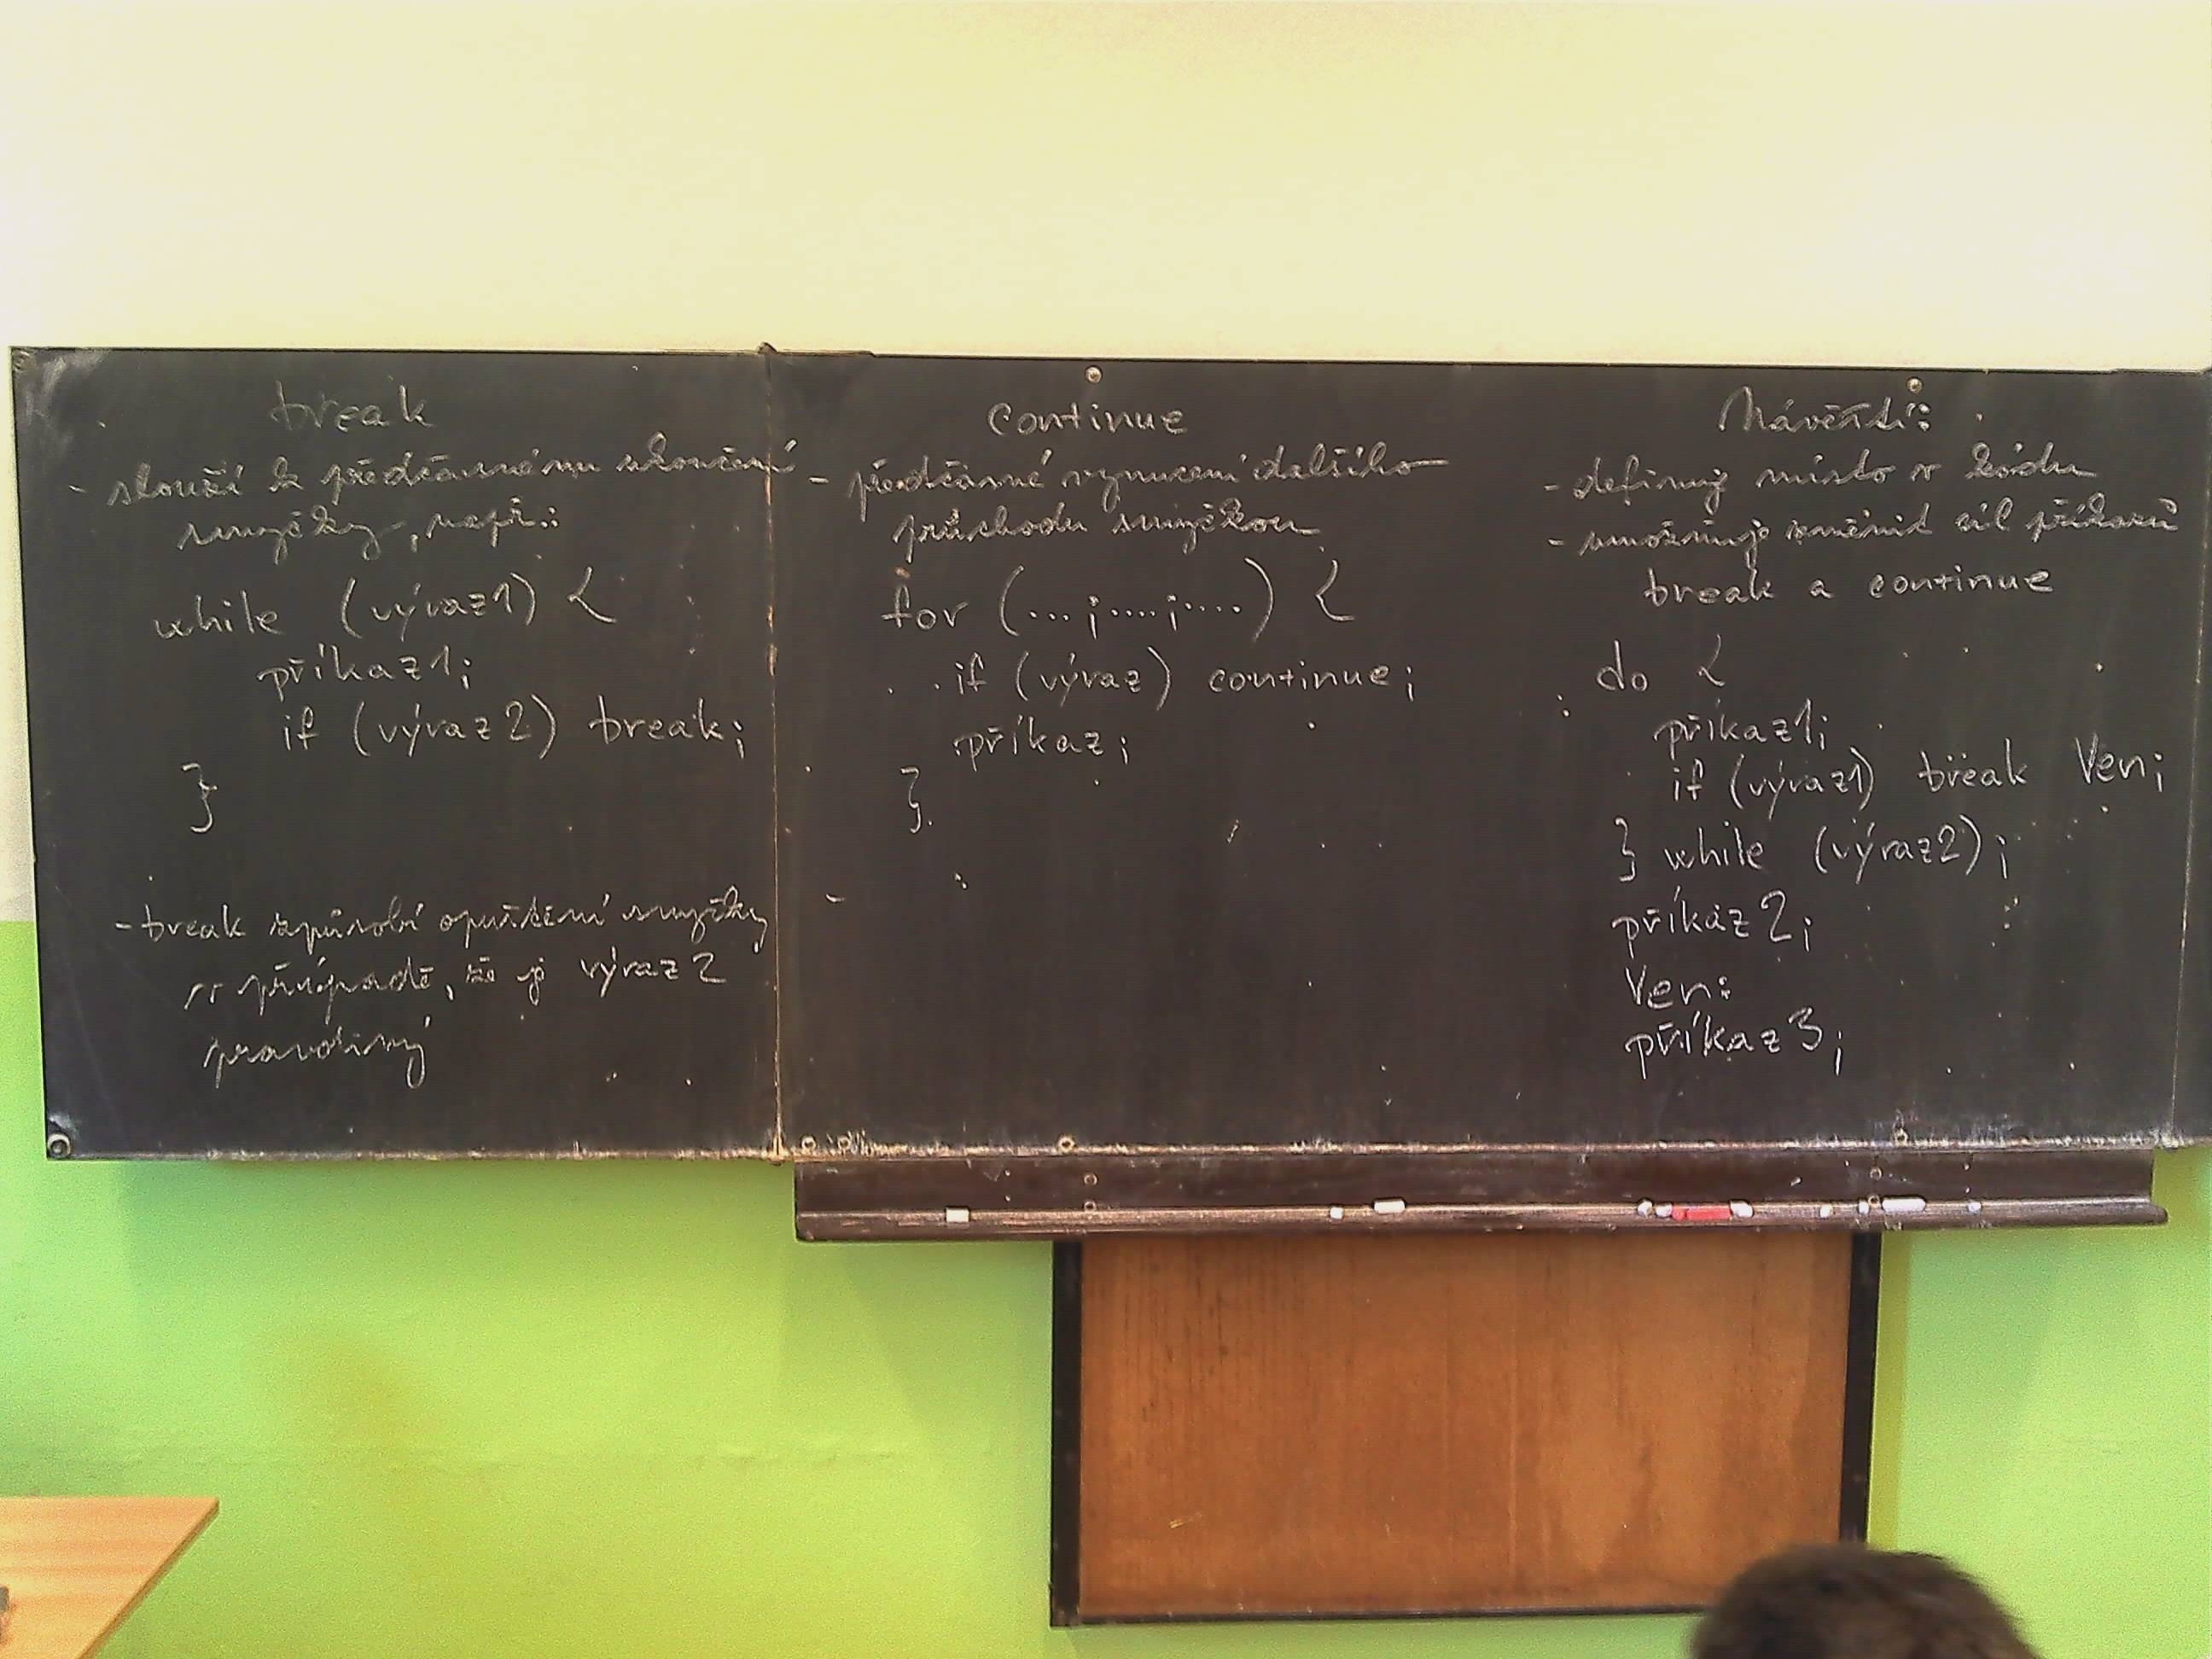 break
- slouží k předčasnému ukončení
smyčky, např.:
while (výraz1) {
příkaz1;
if (výraz2) break;
}
- break způsobí opuštění smyčky
v případě, že je výraz2
pravdivý
continue
- předčasné vynucení dalšího
průchodu smyčkou
for (...;....;....) {
if (výraz) continue;
příkaz;
}
Návěští:
- definuje místo v kódu
- umožňuje změnit cíl příkazů
break a continue
do {
příkaz1;
if (výraz1) break Ven;
} while (výraz2);
příkaz2;
Ven:
příkaz3;